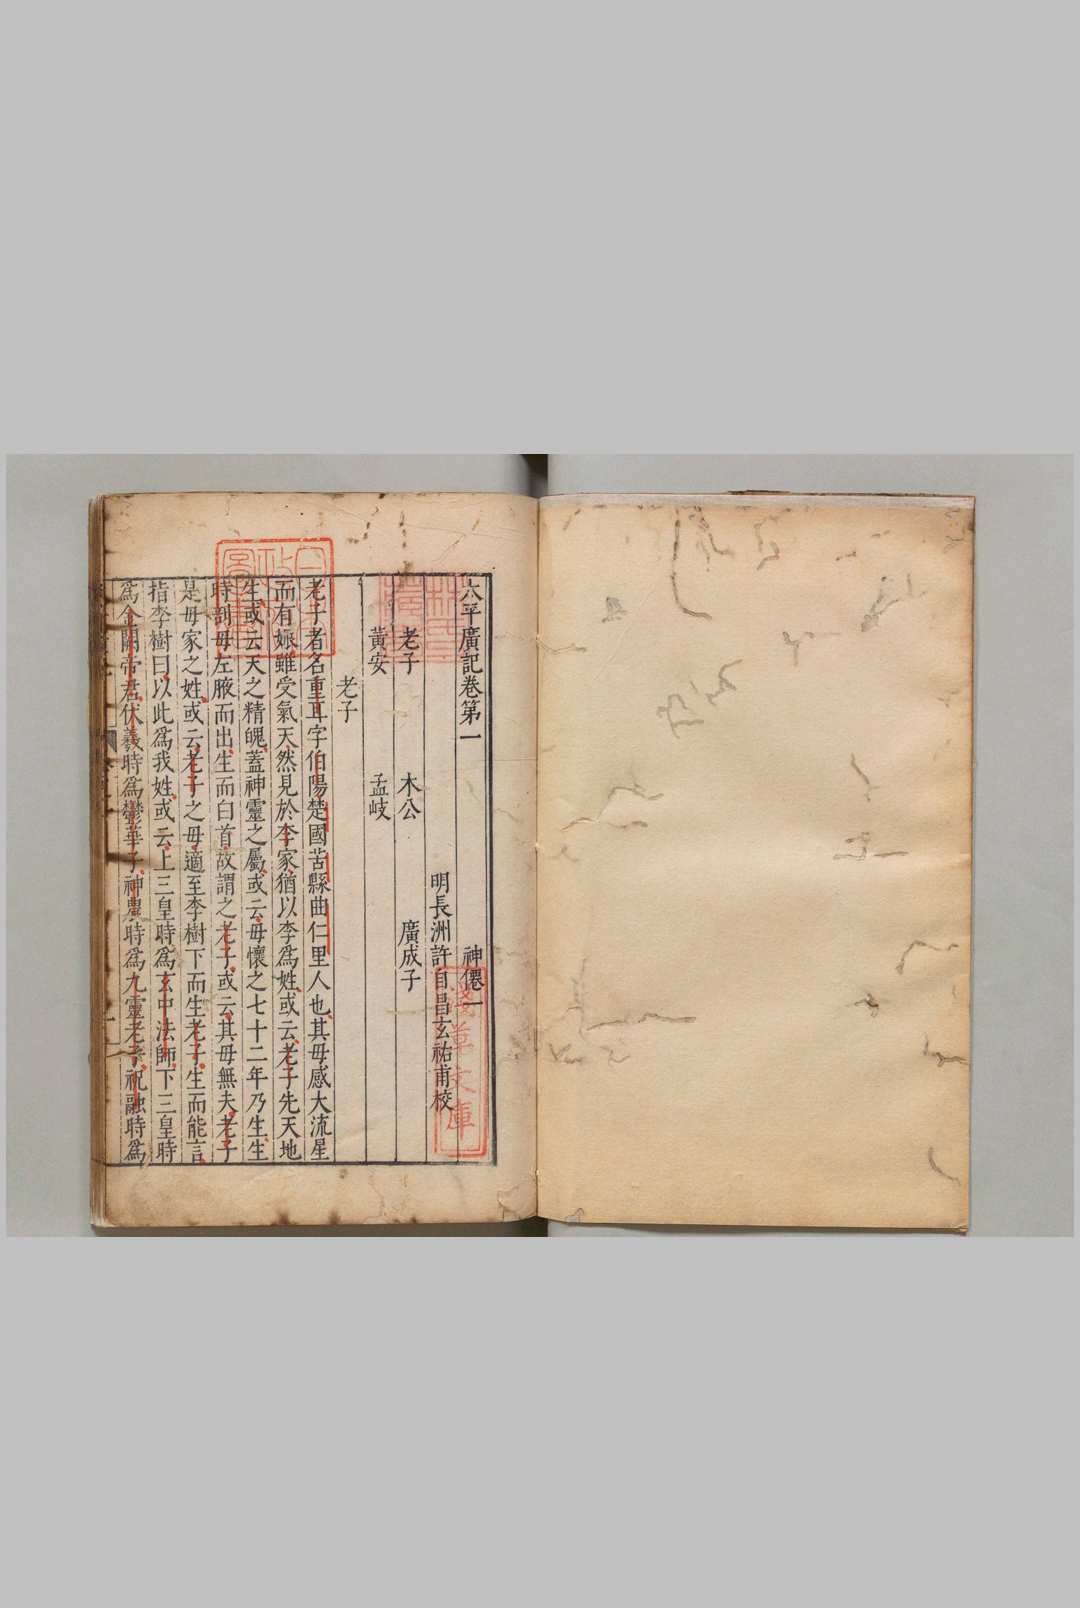 太平廣記卷第一 神僊一
明長洲許自昌玄祐甫校
老子 木公 廣成子
黃安 孟岐
老子
老子者名重耳字伯陽楚國苦縣曲仁里人也其母感大流星
而有娠雖受氣天然見於李家猶以李爲姓或云老子先天地
生或云天之精魄蓋神靈之屬或云母懷之七十二年乃生生
時剖母左腋而出生而白首故謂之老子或云其母無夫老子
是母家之姓或云老子之母適至李樹下而生老子生而能言
指李樹曰以此爲我姓或云上三皇時爲玄中法師下三皇時
爲金闕帝君伏羲時爲鬱華子神農時爲九靈老子祝融時爲
淺草文庫
林氏